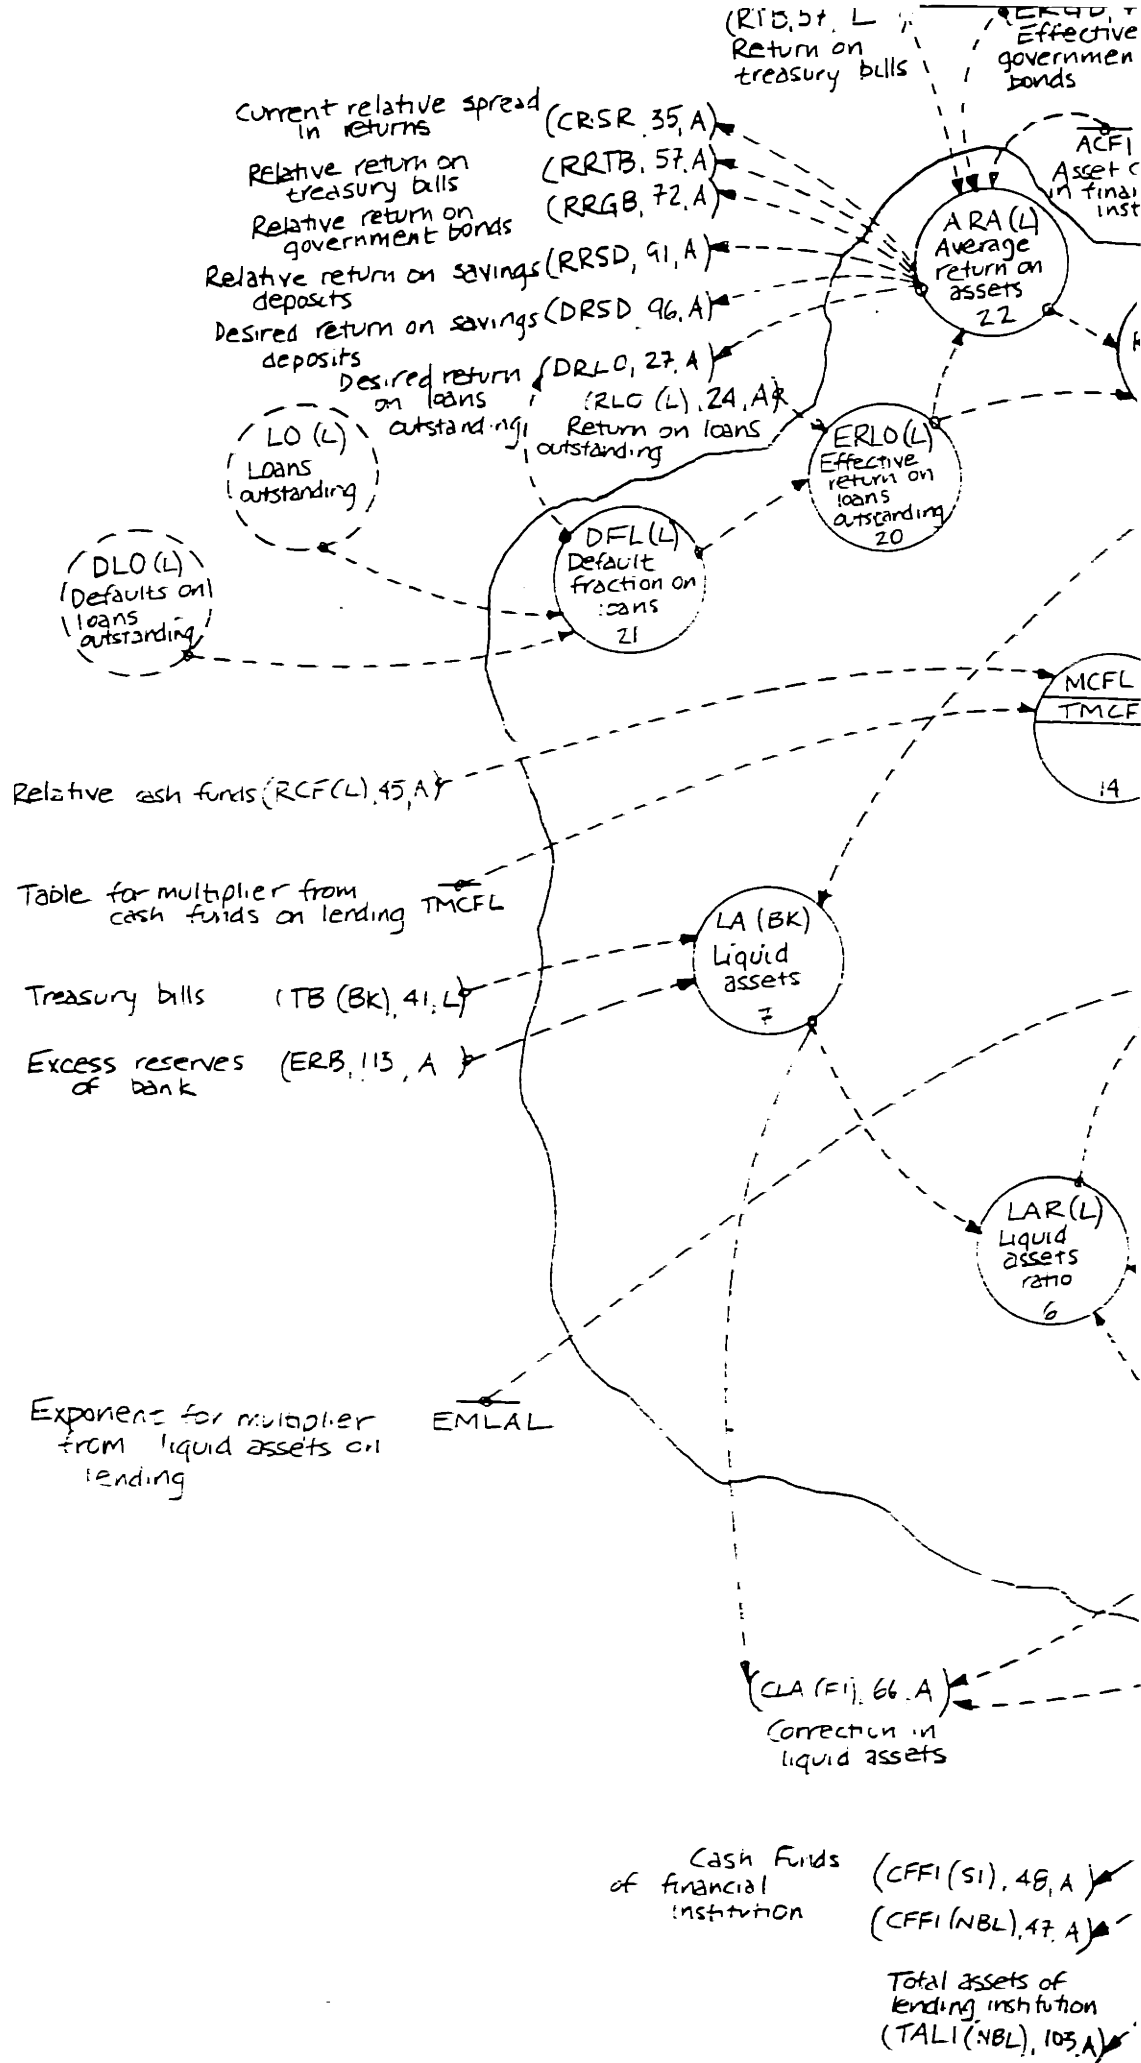 (RTB, 57, L
Return on
treasury bills
Effective
governmen
bonds
Current relative spread
in returns
(CRSR, 35, A)
Relative return on
treasury bills
(RRTB, 57, A)
Relative return on
government bonds
(RRGB, 72, A)
Relative return on savings
deposits
(RRSD, 91, A)
Desired return on savings
deposits
(DRSD, 96, A)
Desired return
on loans
outstanding
(DRLO, 27, A)
(RLO (L), 24, A)
Return on loans
outstanding
ACFI
Asset
in
inst
ARA (L)
Average
return on
assets
22
LO (L)
Loans
outstanding
ERLO (L)
Effective
return on
loans
outstanding
20
DLO (L)
Defaults on
loans
outstanding
DFL (L)
Default
fraction on
loans
21
MCFL
TMCF
14
Relative cash funds (RCF(L), 45, A)
Table for multiplier from
cash funds on lending
TMCFL
LA (BK)
Liquid
assets
7
Treasury bills
(TB (BK), 41, L)
Excess reserves
of bank
(ERB, 113, A )
LAR (L)
Liquid
assets
ratio
6
Exponent for multiplier
from liquid assets on
lending
EMLAL
(CLA (FI), 66, A)
Correction in
liquid assets
Cash Funds
of financial
institution
(CFFI (SI), 48, A)
(CFFI (NBL), 47, A)
Total assets of
lending institution
(TALI (NBL), 103, A)